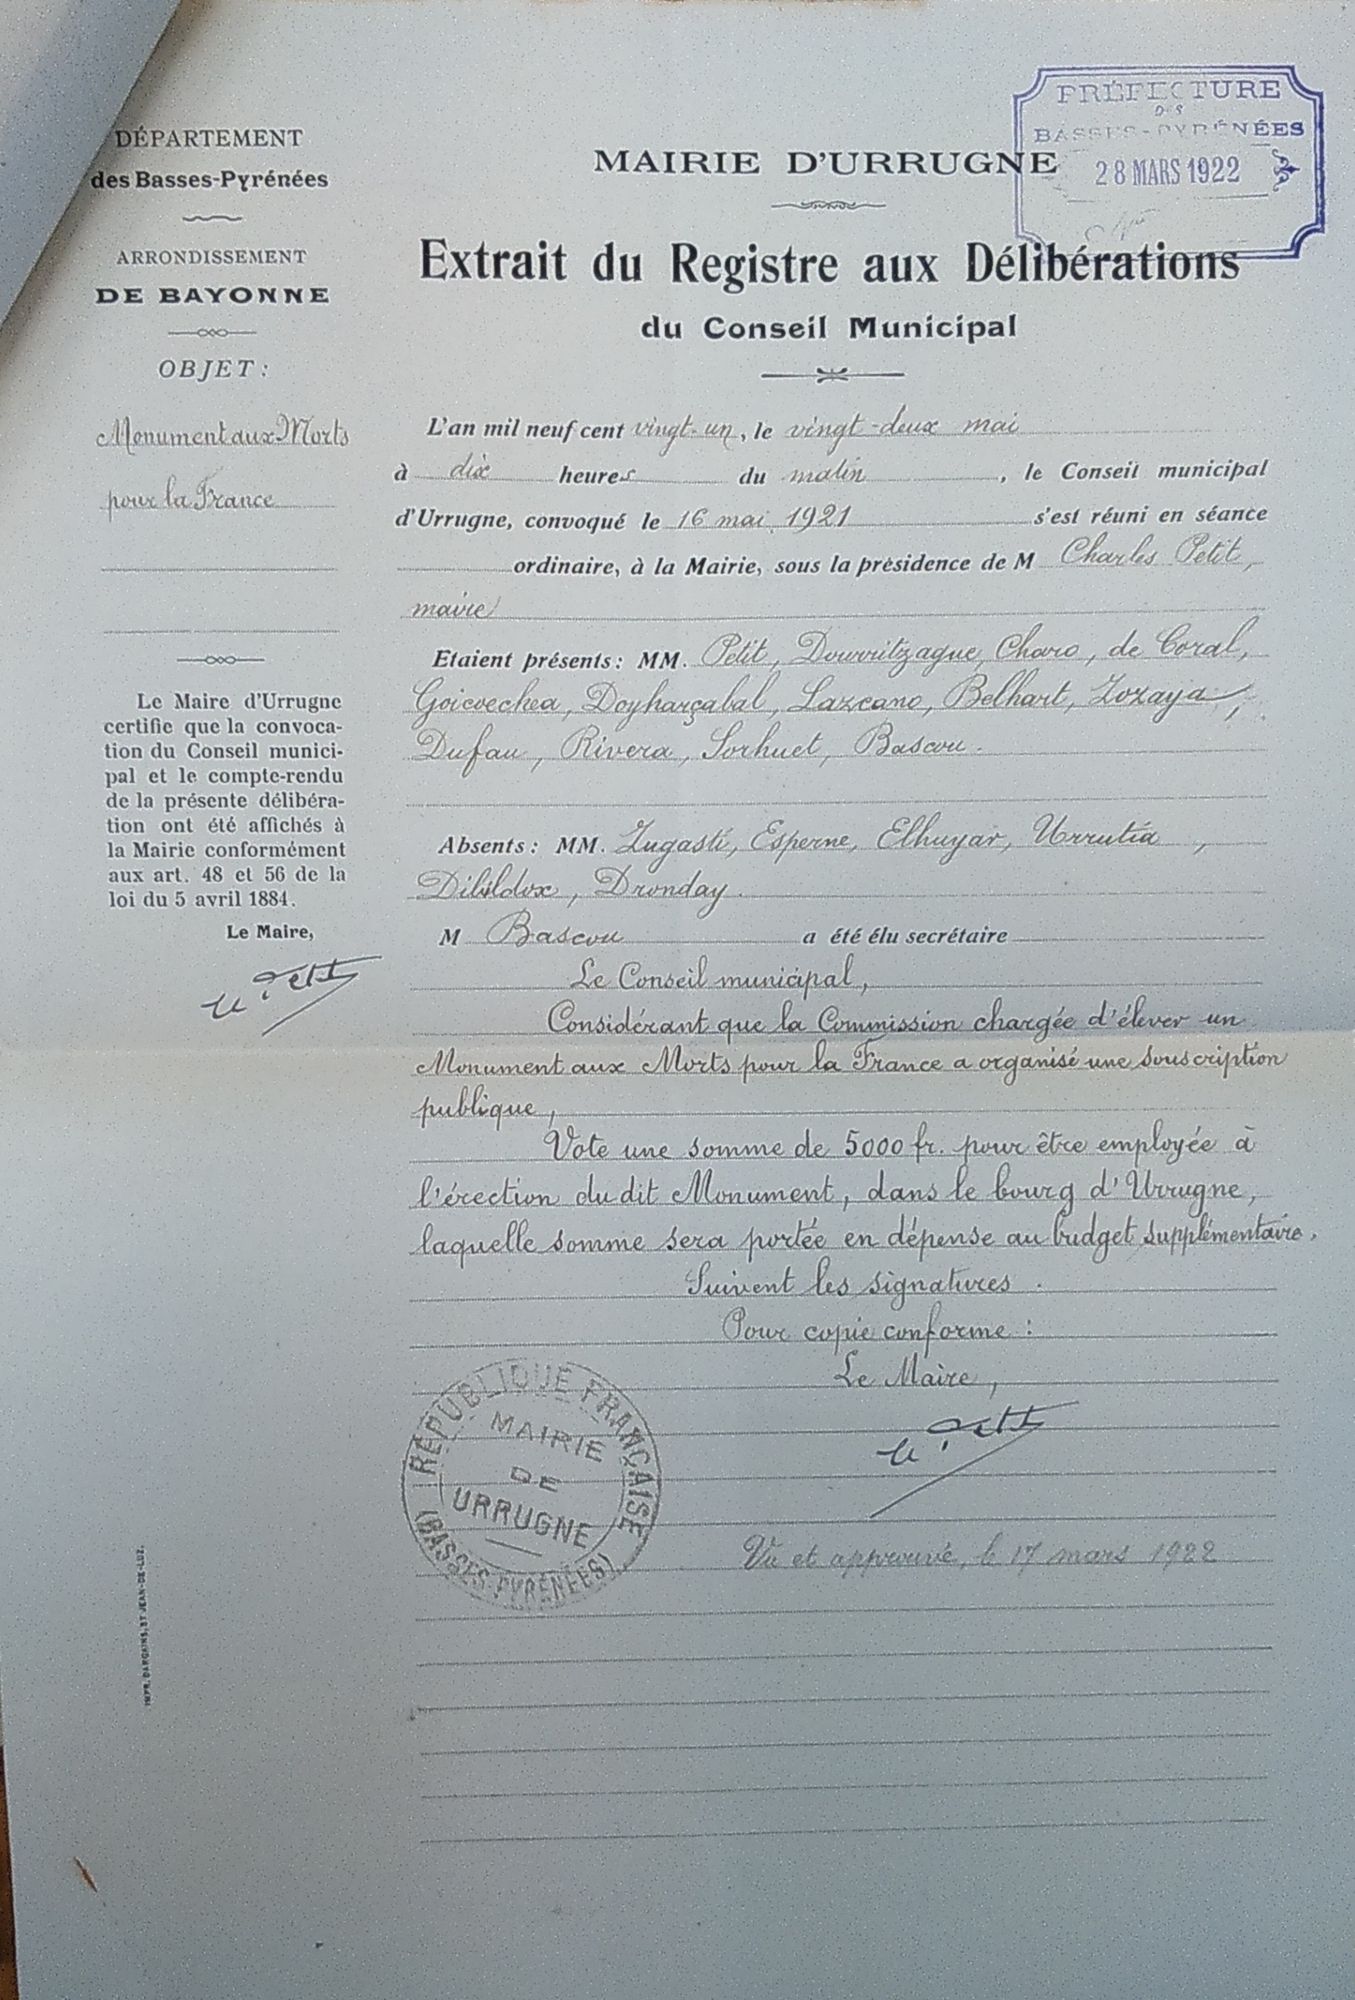 DÉPARTEMENT
des Basses-Pyrénées
ARRONDISSEMENT
DE BAYONNE
OBJET :
Monument aux Morts
pour la France
Le Maire d'Urrugne
certifie que la convoca-
tion du Conseil munici-
pal et le compte-rendu
de la présente délibéra-
tion ont été affichés à
la Mairie conformément
aux art. 48 et 56 de la
loi du 5 avril 1884.
Le Maire,
IMPR. DARGAINS, ST JEAN-DE-LUZ.
PRÉFECTURE
DES
BASSES-PYRÉNÉES
28 MARS 1922
MAIRIE D'URRUGNE
Extrait du Registre aux Délibérations
du Conseil Municipal
L'an mil neuf cent vingt-un, le vingt-deux mai
à dix heures du matin, le Conseil municipal
d'Urrugne, convoqué le 16 mai 1921 s'est réuni en séance
ordinaire, à la Mairie, sous la présidence de M Charles Petit,
maire
Etaient présents : MM. Petit, Dourritzague, Charo, de Coral,
Goicoechea, Doyharçabal, Lazcano, Belhart, Zozaya,
Dufau, Rivera, Sorhuet, Bascou.
Absents : MM. Zugasti, Esperne, Elhuyar, Urrutia,
Dibildox, Dronday.
M Bascou a été élu secrétaire
Le Conseil municipal,
Considérant que la Commission chargée d'élever un
Monument aux Morts pour la France a organisé une souscription
publique,
Vote une somme de 5000 fr. pour être employée à
l'érection du dit Monument, dans le bourg d'Urrugne,
laquelle somme sera portée en dépense au budget supplémentaire.
Suivent les signatures.
Pour copie conforme :
Le Maire,
RÉPUBLIQUE FRANÇAISE
MAIRIE
DE
URRUGNE
(BASSES-PYRÉNÉES)
Vu et approuvé, le 17 mars 1922